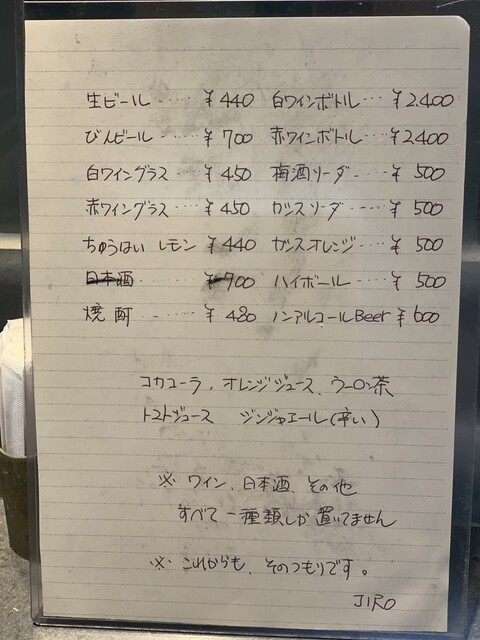 生ビール ····· ¥440 白ワインボトル ··· ¥2.400
びんビール ····· ¥700 赤ワインボトル ···· ¥2400
白ワイングラス ··· ¥450 梅酒ソーダ ··· ¥500
赤ワイングラス ··· ¥450 カシスソーダ ··· ¥500
ちゅうはい レモン ¥440 カシスオレンジ ··· ¥500
日本酒 ¥700 ハイボール ···· ¥500
焼酎 ····· ¥480 ノンアルコールBeer ¥600
コカコーラ, オレンジジュース、ウーロン茶
トマトジュース ジンジャエール(辛い)
※ ワイン、日本酒、その他
すべて一種類しか置いてません
※ これからも、そのつもりです。
JIRO